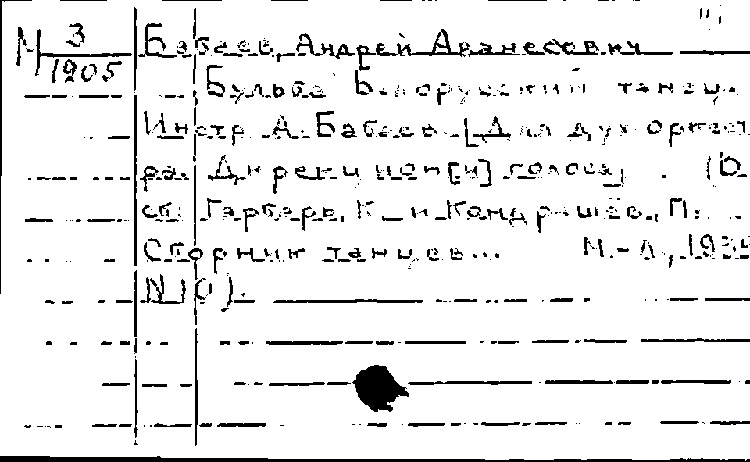 М 3/1905 Бабаев, Андрей Аванесович
Бульба. Белорусский танец.
Инстр. А. Бабаев. [Для дух. оркест
ра. Дирекцион[и] голоса]. (В
сб: Гарбарь, К. и Кондрашёв, П.
Сборник танцев... М.-Л.,
N 10).